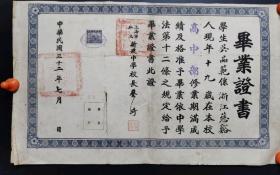 畢業證書
學生吳品範係浙江慈谿
人現年十九歲在本校
高中部修業期滿成
績及格准予畢業依中學
法第十二條之規定給予
畢業證書此證
中學校長
中華民國三十三年七月 日